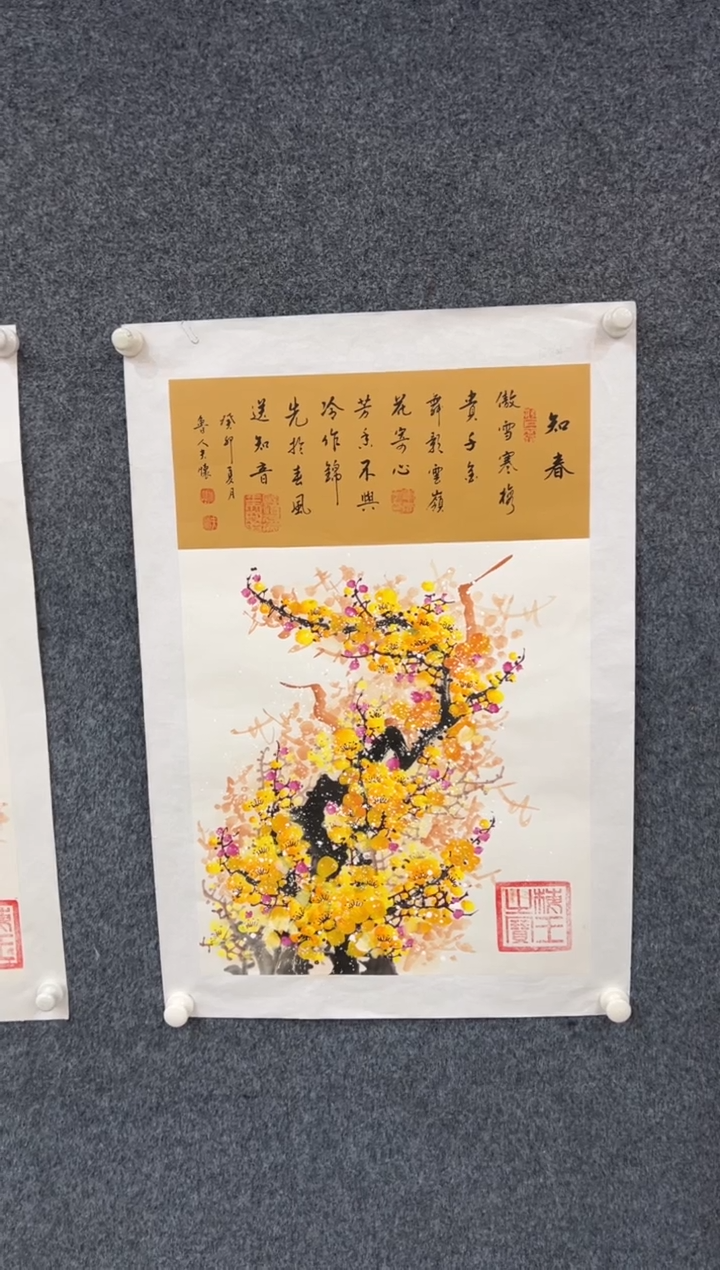 知春
傲雪寒梅
貴千金
舞影雲嶺
花寄心
芳香不與
冷作錦
先於春風
送知音
癸卯夏月
魯人
梅王之寶